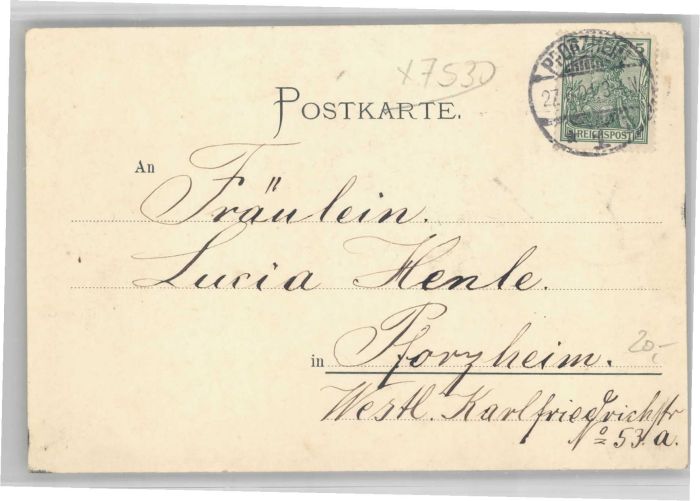 x7530
POSTKARTE.
PFORZHEIM
5
REICHSPOST
An
Fräulein.
Lucia Henle.
in Pforzheim.
20,-
Westl. Karlfriedrichstr
No 53.a.